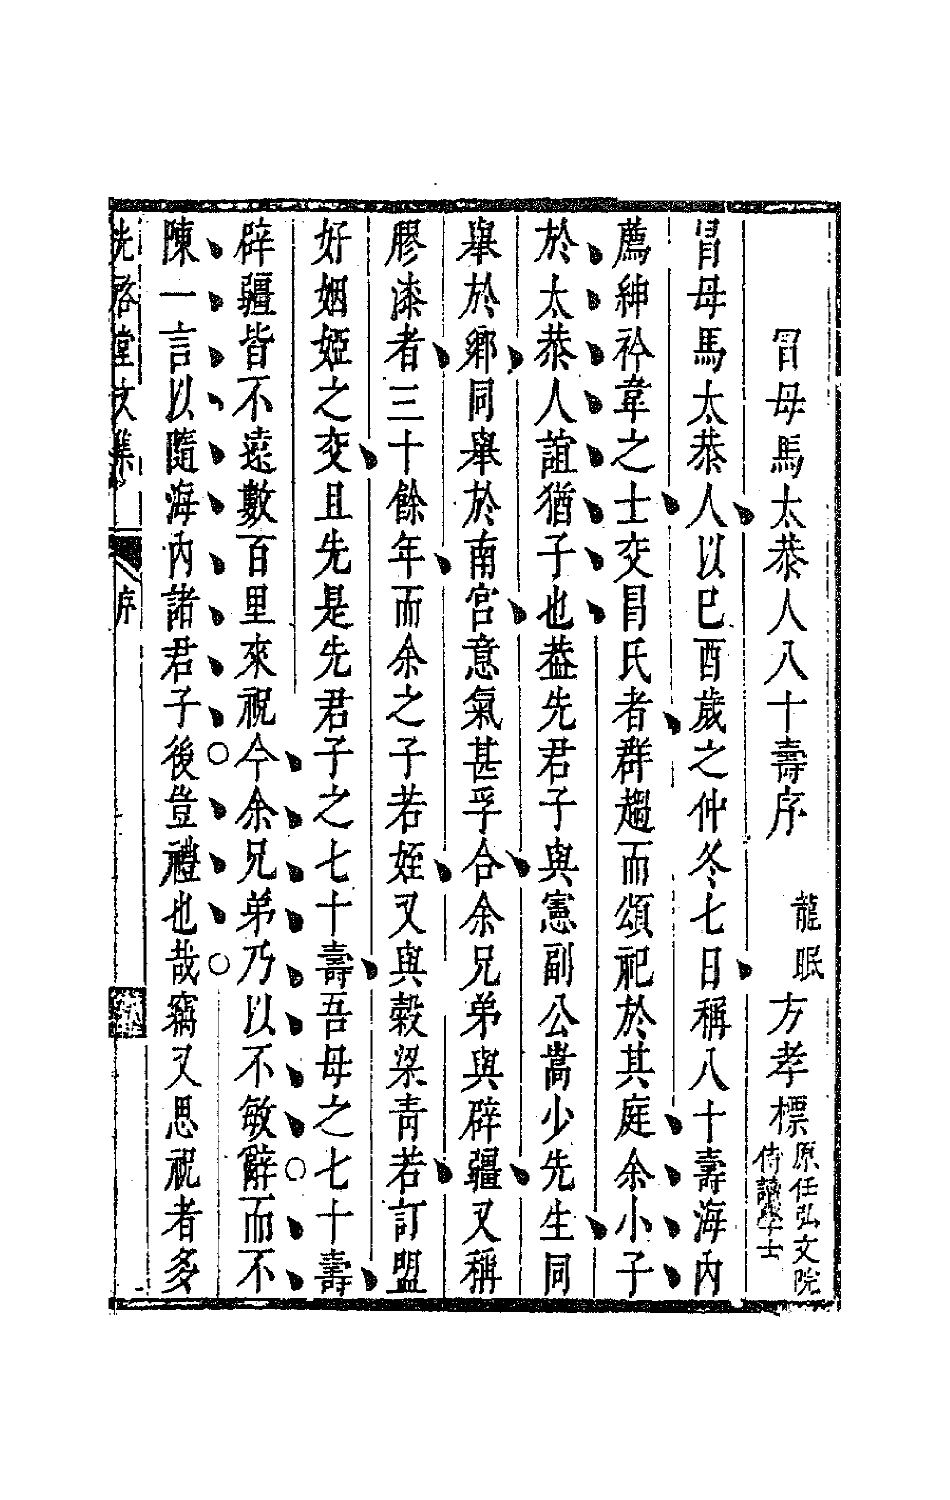 冒母馬太恭人八十壽序　龍眠方孝標
原任弘文院
侍讀學士
冒母馬太恭人以巳酉歲之仲冬七日稱八十壽海內
薦紳衿韋之士交冒氏者群趨而頌祀於其庭余小子
於太恭人誼猶子也葢先君子與憲副公嵩少先生同
舉於鄉同舉於南宮意氣甚孚合余兄弟與辟疆又稱
膠漆者三十餘年而余之子若姪又與榖梁青若訂盟
好姻婭之交且先是先君子之七十壽吾母之七十壽
辟疆皆不遠數百里來祝今余兄弟乃以不敏辭而不
陳一言以隨海內諸君子後豈禮也哉竊又思祝者多
光啓堂文集　序